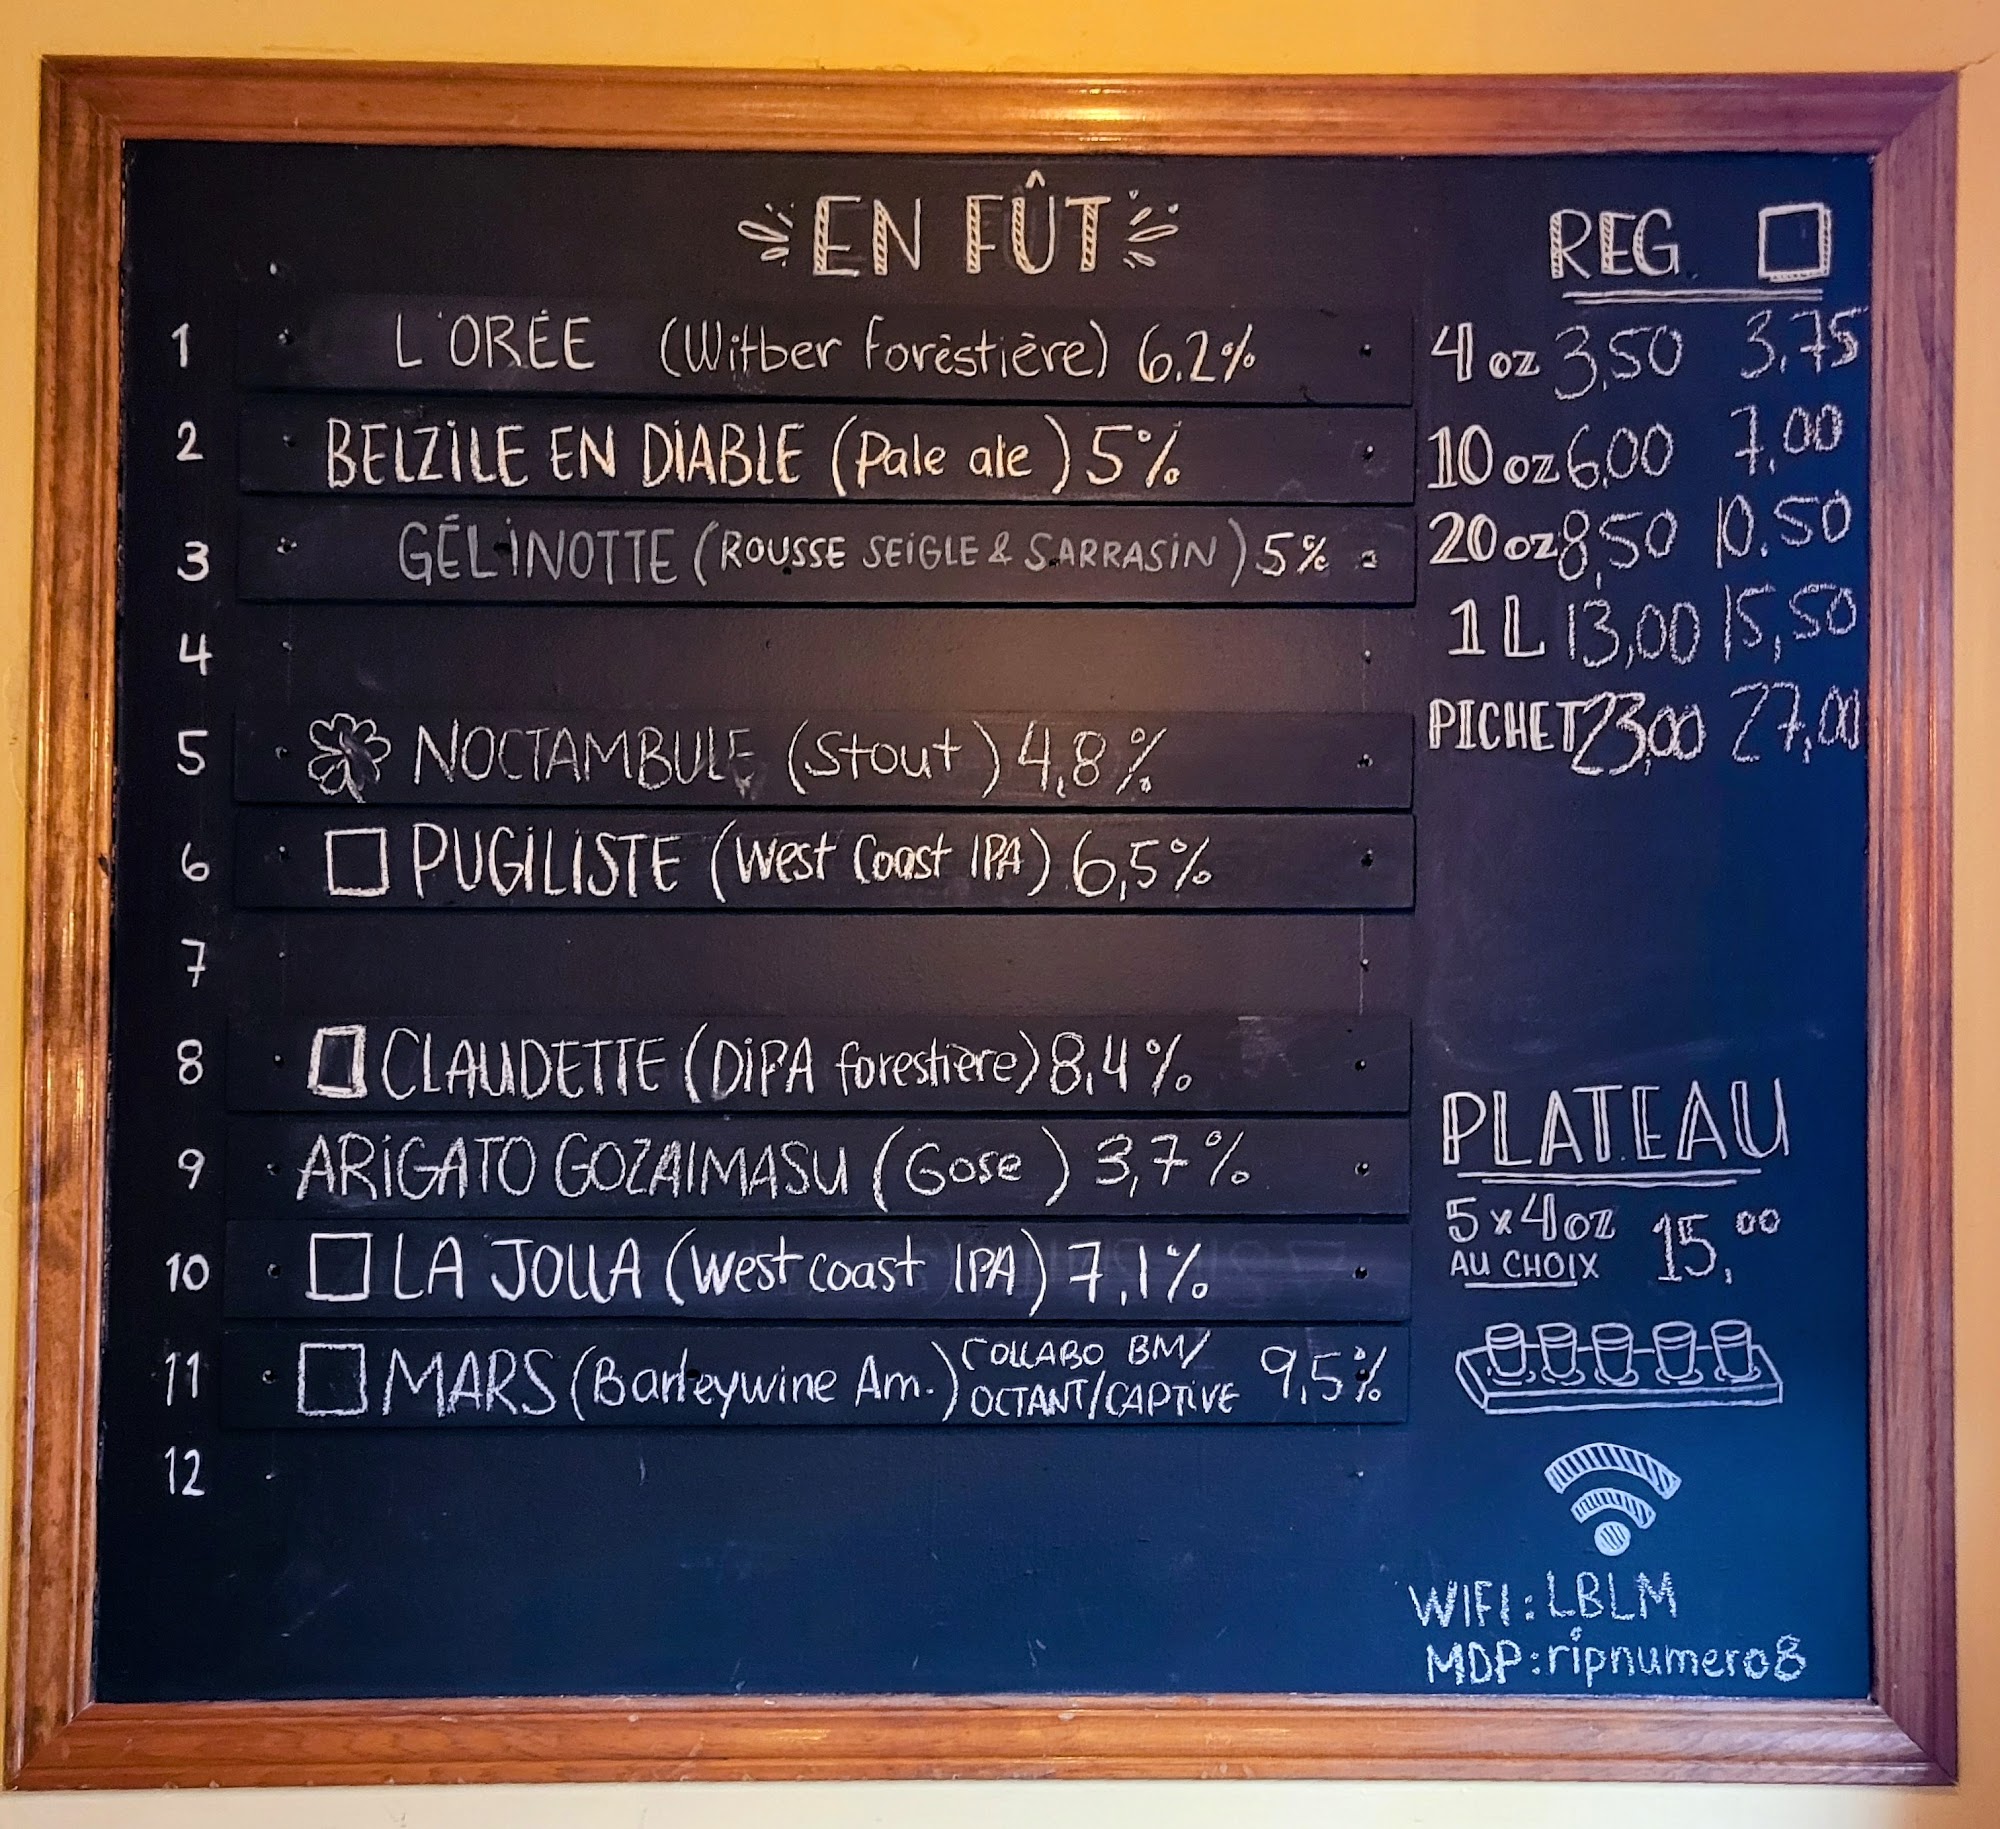 EN FÛT
1 L'ORÉE (Witber forèstière) 6.2%
2 BELZILE EN DIABLE (Pale ale) 5%
3 GÉLINOTTE (ROUSSE SEIGLE & SARRASIN) 5%
4
5 NOCTAMBULE (Stout) 4,8%
6 PUGILISTE (West Coast IPA) 6,5%
7
8 CLAUDETTE (DIPA forestière) 8,4%
9 ARIGATO GOZAIMASU (Gose) 3,7%
10 LA JOLLA (West coast IPA) 7,1%
11 MARS (Barleywine Am.) COLLABO BM/
OCTANT/CAPTIVE 9,5%
12
REG
4 oz 3,50 3,75
10 oz 6,00 7,00
20 oz 8,50 10.50
1 L 13,00 15,50
PICHET 23,00 27,00
PLATEAU
5 x 4 oz 15,00
AU CHOIX
WIFI: LBLM
MDP: ripnumero8